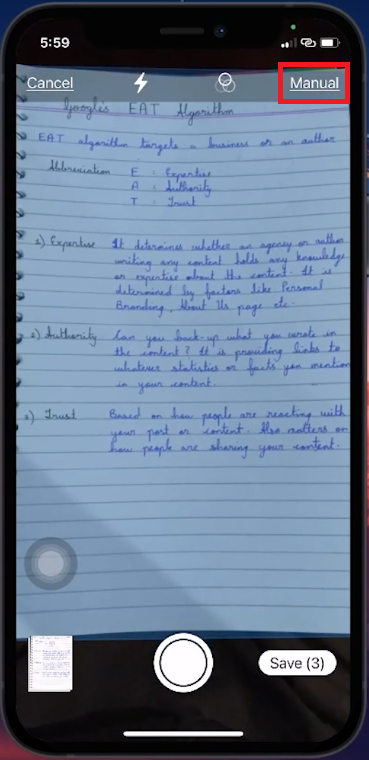 5:59
Cancel
Manual
Google's EAT Algorithm
EAT algorithm targets a business or an author
Abbreviation E : Expertise
A : Authority
T : Trust
1) Expertise It determines whether an agency or author
writing any content holds any knowledge
or expertise about the content. It is
determined by factors like Personal
Branding, About Us page etc.
2) Authority Can you back-up what you wrote in
the content? It is providing links to
whatever statistics or facts you mention
in your content.
3) Trust Based on how people are reacting with
your post or content. Also matters on
how people are sharing your content.
Save (3)